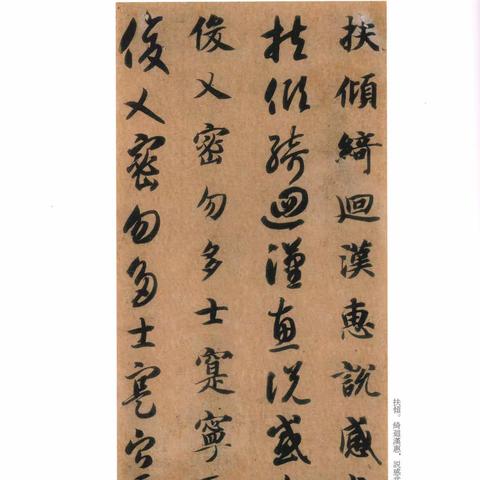 扶傾綺迴漢惠說感
扶傾綺迴漢惠說感
俊乂密勿多士寔寧
俊乂密勿多士寔寧
扶傾。綺迴漢惠，説感